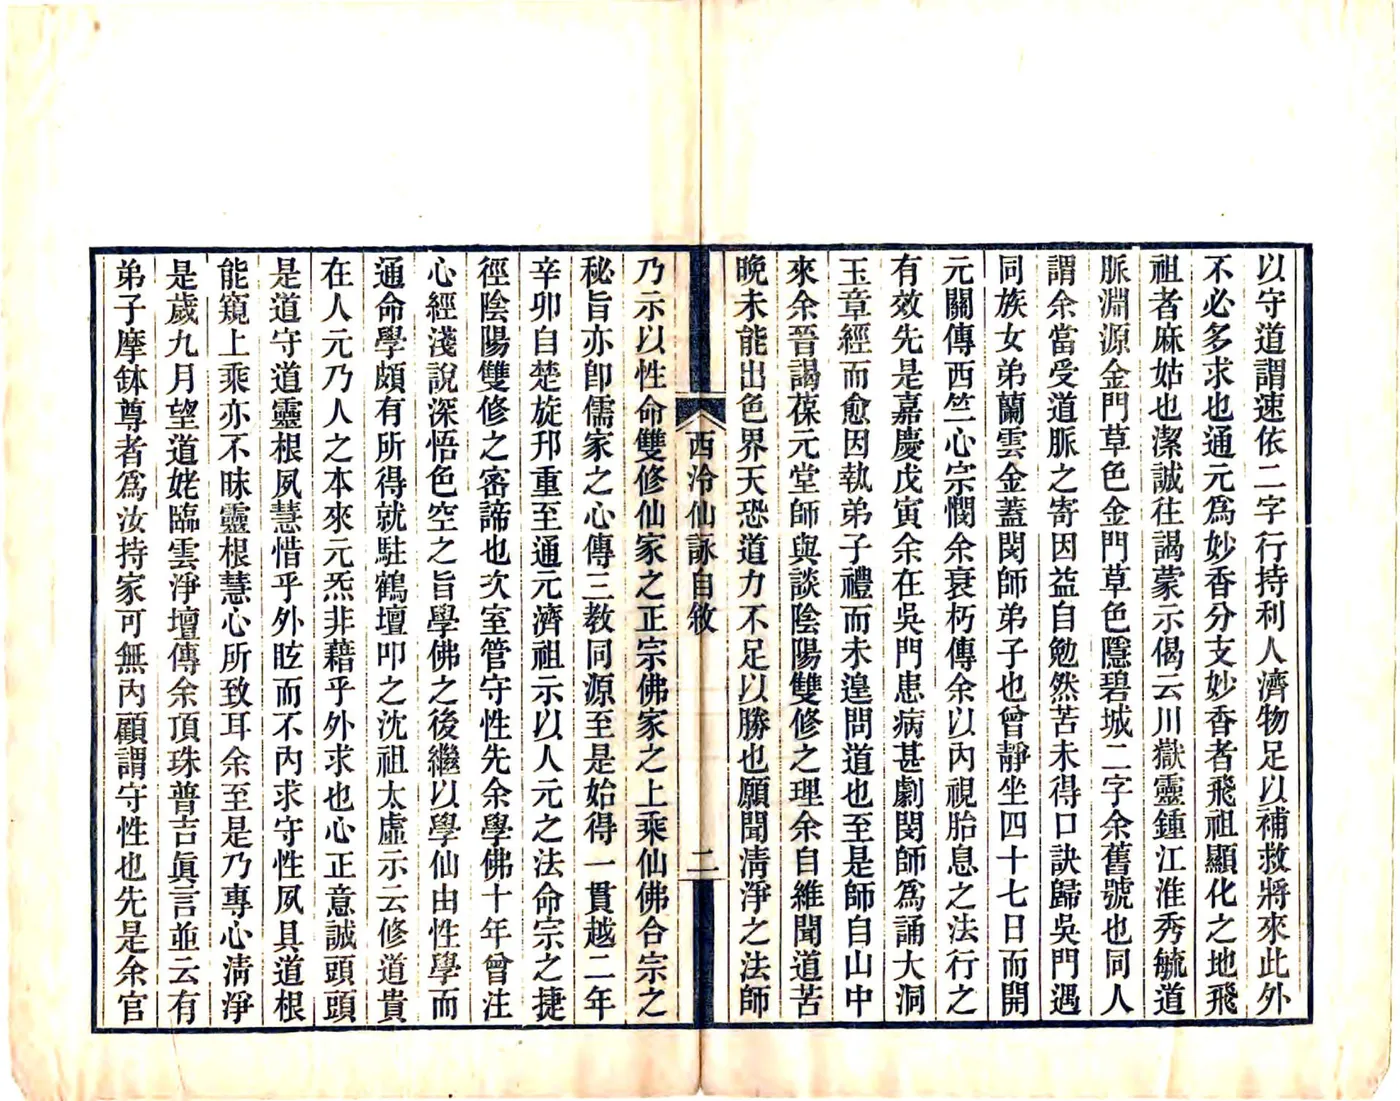 以守道謂速依二字行持利人濟物足以補救將來此外
不必多求也通元爲妙香分支妙香者飛祖顯化之地飛
祖者麻姑也潔誠往謁蒙示偈云川嶽靈鍾江淮秀毓道
脈淵源金門草色金門草色隱碧城二字余舊號也同人
謂余當受道脈之寄因益自勉然苦未得口訣歸吳門遇
同族女弟蘭雲金蓋閔師弟子也曾靜坐四十七日而開
元關傳西竺心宗憫余衰朽傳余以內視胎息之法行之
有效先是嘉慶戊寅余在吳門患病甚劇閔師爲誦大洞
玉章經而愈因執弟子禮而未遑問道也至是師自山中
來余晉謁葆元堂師與談陰陽雙修之理余自維聞道苦
晚未能出色界天恐道力不足以勝也願聞淸淨之法師
西泠仙詠自敘
二
乃示以性命雙修仙家之正宗佛家之上乘仙佛合宗之
秘旨亦卽儒家之心傳三教同源至是始得一貫越二年
辛卯自楚旋邗重至通元濟祖示以人元之法命宗之捷
徑陰陽雙修之密諦也次室管守性先余學佛十年曾注
心經淺說深悟色空之旨學佛之後繼以學仙由性學而
通命學頗有所得就駐鶴壇叩之沈祖太虛示云修道貴
在人元乃人之本來元炁非藉乎外求也心正意誠頭頭
是道守道靈根夙慧惜乎外眩而不內求守性夙具道根
能窺上乘亦不昧靈根慧心所致耳余至是乃專心淸淨
是歲九月望道姥臨雲淨壇傳余頂珠普吉眞言並云有
弟子摩鉢尊者爲汝持家可無內顧謂守性也先是余官